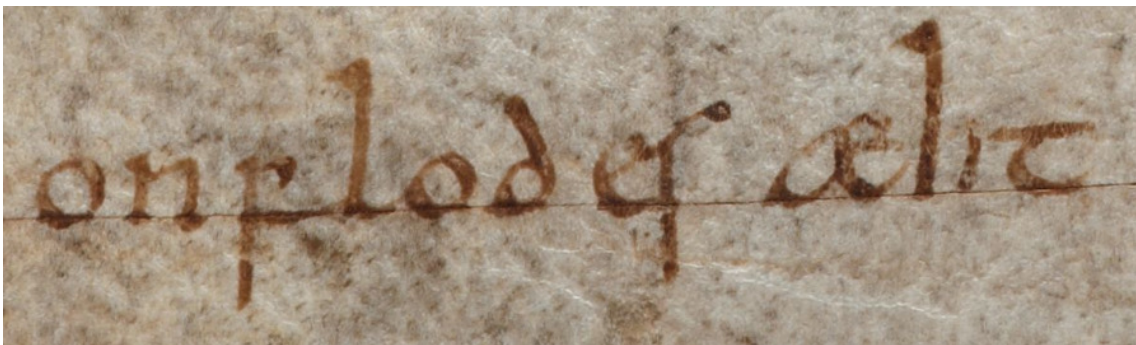 onflodes æht